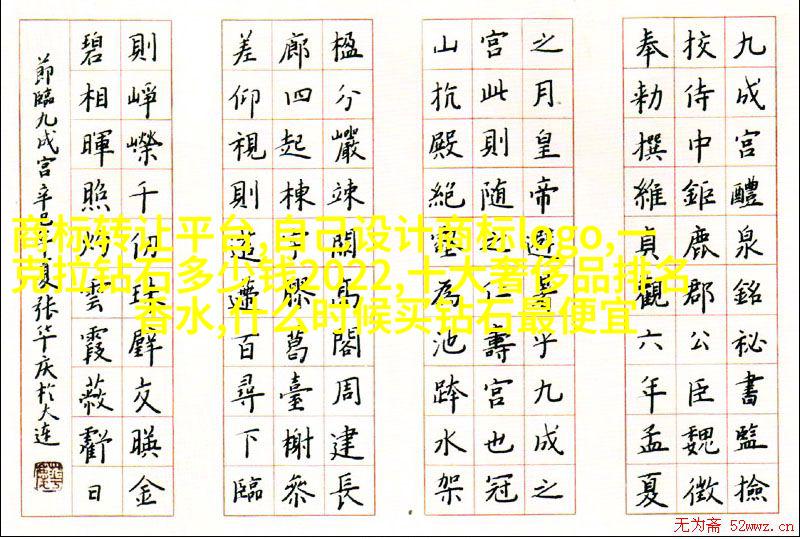 九成宮醴泉銘秘書監撿
挍侍中鉅鹿郡公臣魏徵
奉勑撰維貞觀六年孟夏
之月皇帝避暑乎九成之
宮此則随之仁壽宮也冠
山抗殿絕壑為池跨水架
楹分巖竦闕高閣周建長
廊四起棟宇膠葛臺榭參
差仰視則迢遰百尋下臨
則崢嶸千仞珠璧交暎金
碧相暉照灼雲霞蔽虧日
節臨九成宮辛巳年夏张华庆於大连
商标转让平台,自己设计商标logo,一
克拉钻石多少钱2022,十大奢侈品排名
香水,什么时候买钻石最便宜
无为斋 52wwz.cn